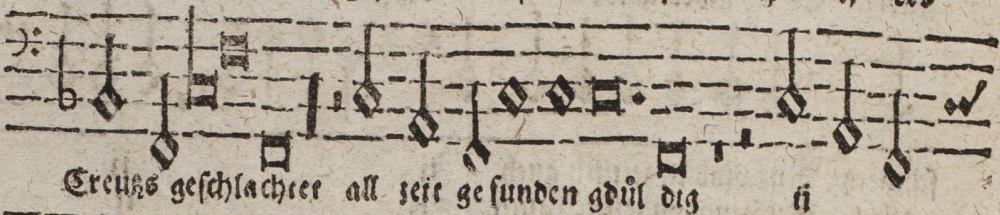 Creutzs geschlachtet all zeit gesunden gdůl dig ij